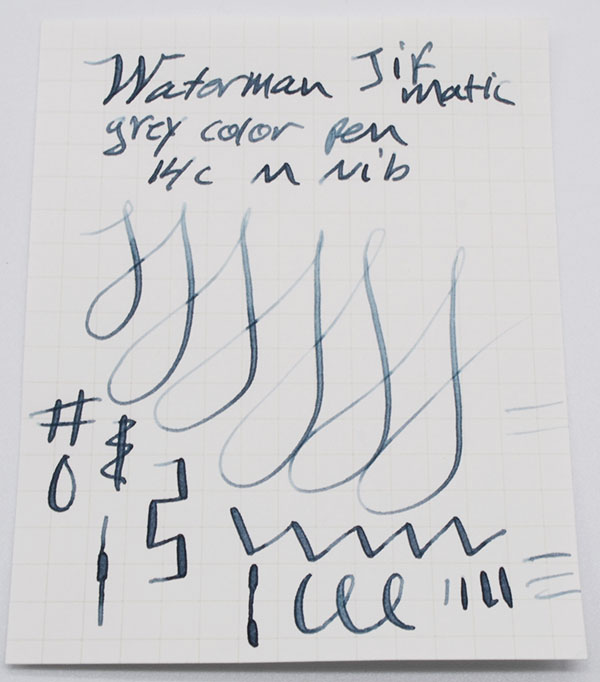 Waterman Jif
matic
grey color pen
14c M Nib
# $
0